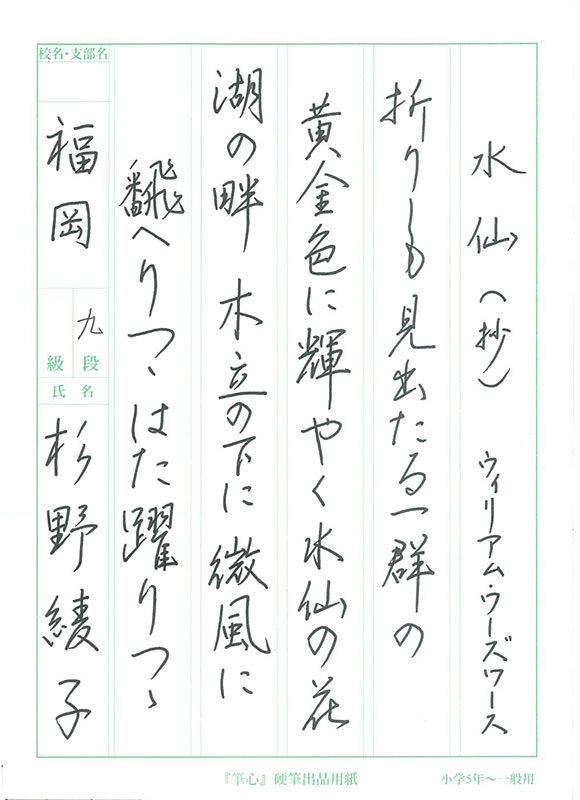 水仙（抄）　ウィリアム・ワーズワース
折りしも見出たる一群の
黄金色に輝やく水仙の花
湖の畔　木立の下に微風に
翻へりつゝはた躍りつゝ
校名・支部名
福岡
九
級　段
氏名
杉野綾子
『筆心』硬筆出品用紙
小学5年～一般用